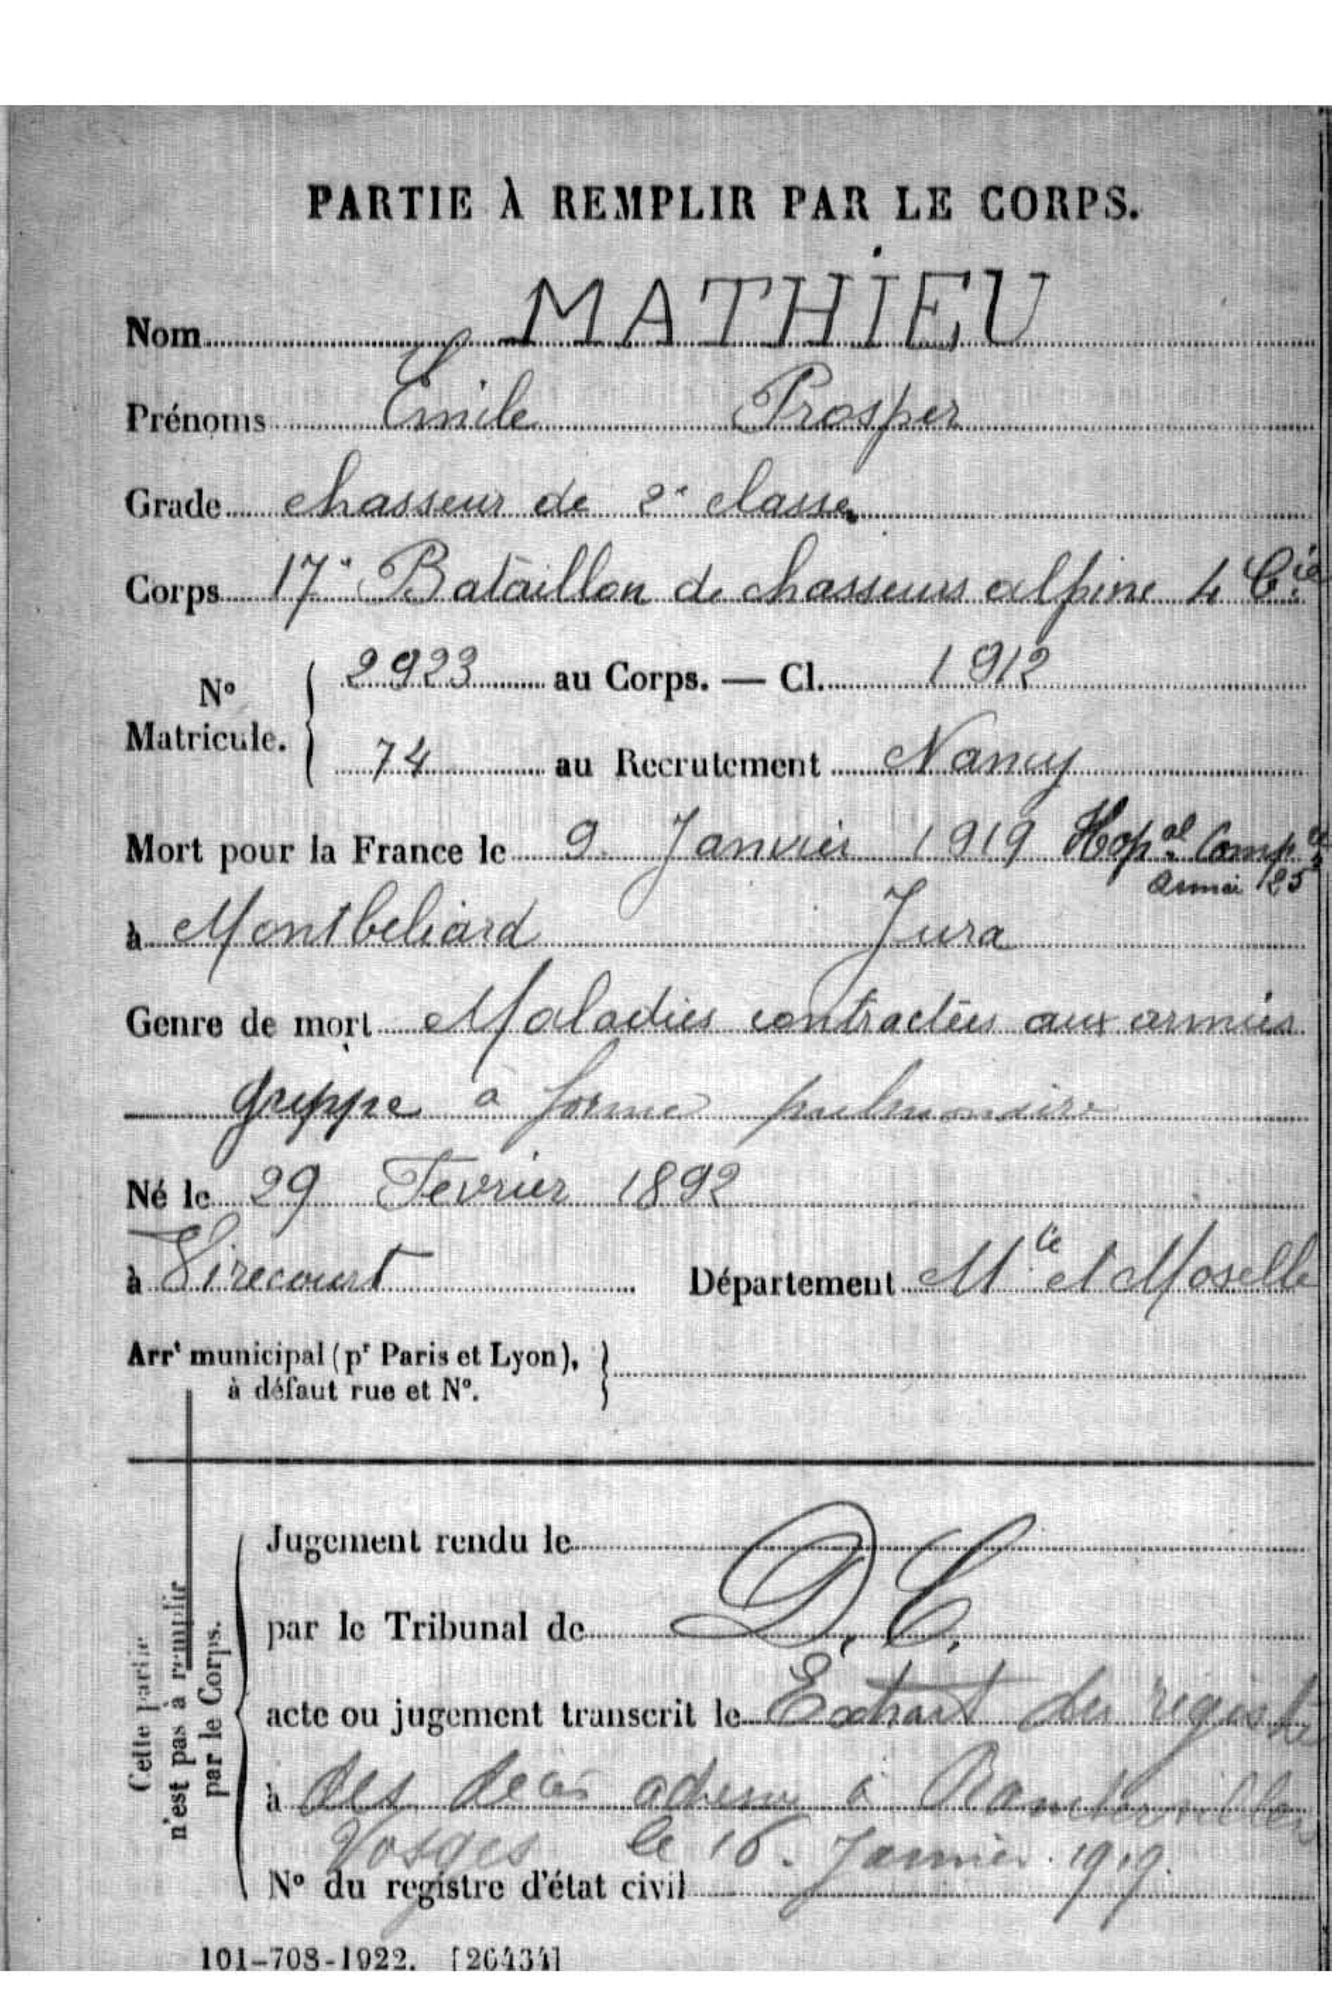 PARTIE À REMPLIR PAR LE CORPS.
Nom MATHIEU
Prénoms Émile Prosper
Grade chasseur de 2e classe
Corps 17e Bataillon de chasseurs alpins 4 Cie
No Matricule. 2923 au Corps. — Cl. 1912
74 au Recrutement Nancy
Mort pour la France le 9 Janvier 1919 Hopal Comp
armée 125
à Montbeliard Jura
Genre de mort Maladies contractées aux armées
grippe à forme pulmonaire
Né le 29 Fevrier 1892
à Virecourt Département Mthe et Moselle
Arrt municipal (pr Paris et Lyon),
à défaut rue et No.
Cette partie
n'est pas à remplir
par le Corps.
Jugement rendu le
par le Tribunal de D. C.
acte ou jugement transcrit le Extrait du registre
à des décès adressé à Rambervillers
Vosges le 16 Janvier 1919.
No du registre d'état civil
101-708-1922. [26434]